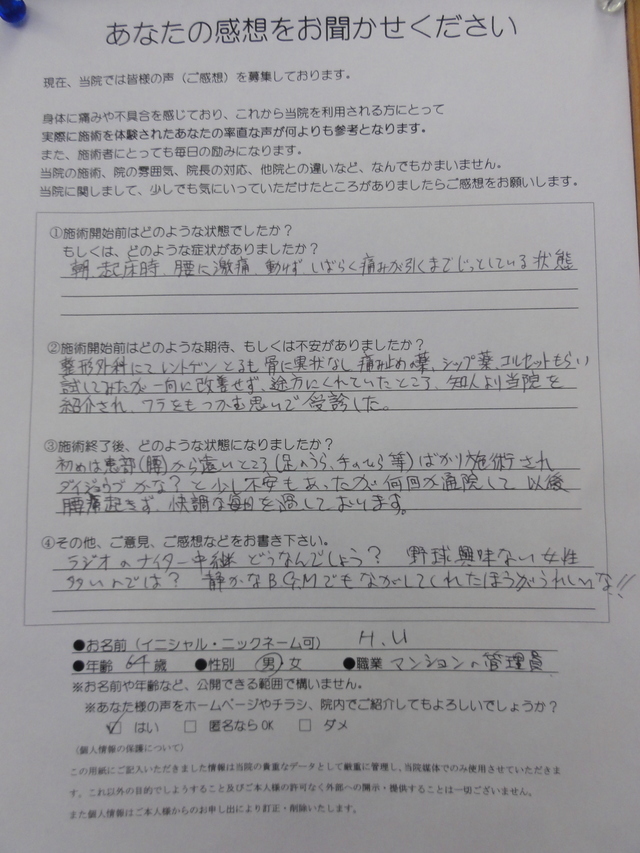 あなたの感想をお聞かせください
現在、当院では皆様の声（ご感想）を募集しております。
身体に痛みや不具合を感じており、これから当院を利用される方にとって
実際に施術を体験されたあなたの率直な声が何よりも参考となります。
また、施術者にとっても毎日の励みになります。
当院の施術、院の雰囲気、院長の対応、他院との違いなど、なんでもかまいません。
当院に関しまして、少しでも気にいっていただけたところがありましたらご感想をお願いします。
①施術開始前はどのような状態でしたか？
もしくは、どのような症状がありましたか？
朝、起床時、腰に激痛、動けず しばらく痛みが引くまでじっとしている状態
②施術開始前はどのような期待、もしくは不安がありましたか？
整形外科にて レントゲンとるも骨に異状なし 痛み止め薬、シップ薬、コルセットもらい
試してみたが一向に改善せず、途方にくれていたところ、知人より当院を
紹介され、ワラをもつかむ思いで受診した。
③施術終了後、どのような状態になりましたか？
初めは患部(腰)から遠いところ(足のうら、手のひら等)ばかり施術され
ダイジョウブかな？と少し不安もあったが何回か通院して 以後
腰痛起きず、快調な毎日を過しております。
④その他、ご意見、ご感想などをお書き下さい。
ラジオのナイター中継 どうなんでしょう？ 野球興味ない女性
多いのでは？ 静かなB.G.Mでもながしてくれたほうがうれしいな!!
●お名前（イニシャル・ニックネーム可） H.U
●年齢 64歳 ●性別 男 女 ●職業 マンションの管理員
※お名前や年齢など、公開できる範囲で構いません。
※あなた様の声をホームページやチラシ、院内でご紹介してもよろしいでしょうか？
☑ はい □ 匿名ならOK □ ダメ
（個人情報の保護について）
この用紙にご記入いただきました情報は当院の貴重なデータとして厳重に管理し、当院媒体でのみ使用させていただきま
す。これ以外の目的でしようすること及びご本人様の許可なく外部への開示・提供することは一切ございません。
また個人情報はご本人様からのお申し出により訂正・削除いたします。